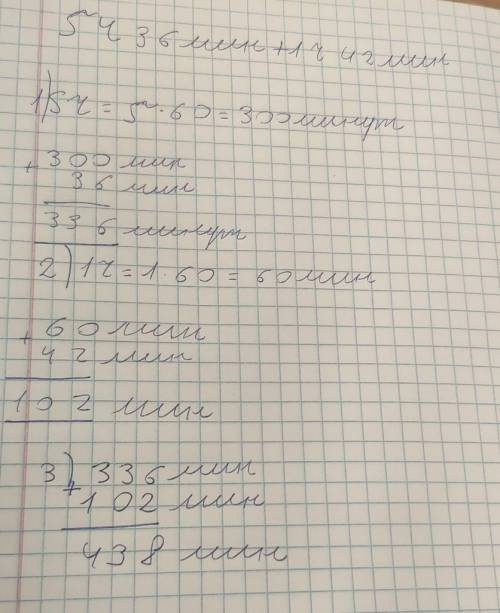 5ч 36 мин + 1ч 42 мин
1) 5ч = 5 · 60 = 300 минут
+ 300 мин
36 мин
336 минут
2) 1ч = 1 · 60 = 60 мин
+ 60 мин
42 мин
102 мин
3) + 336 мин
102 мин
438 мин